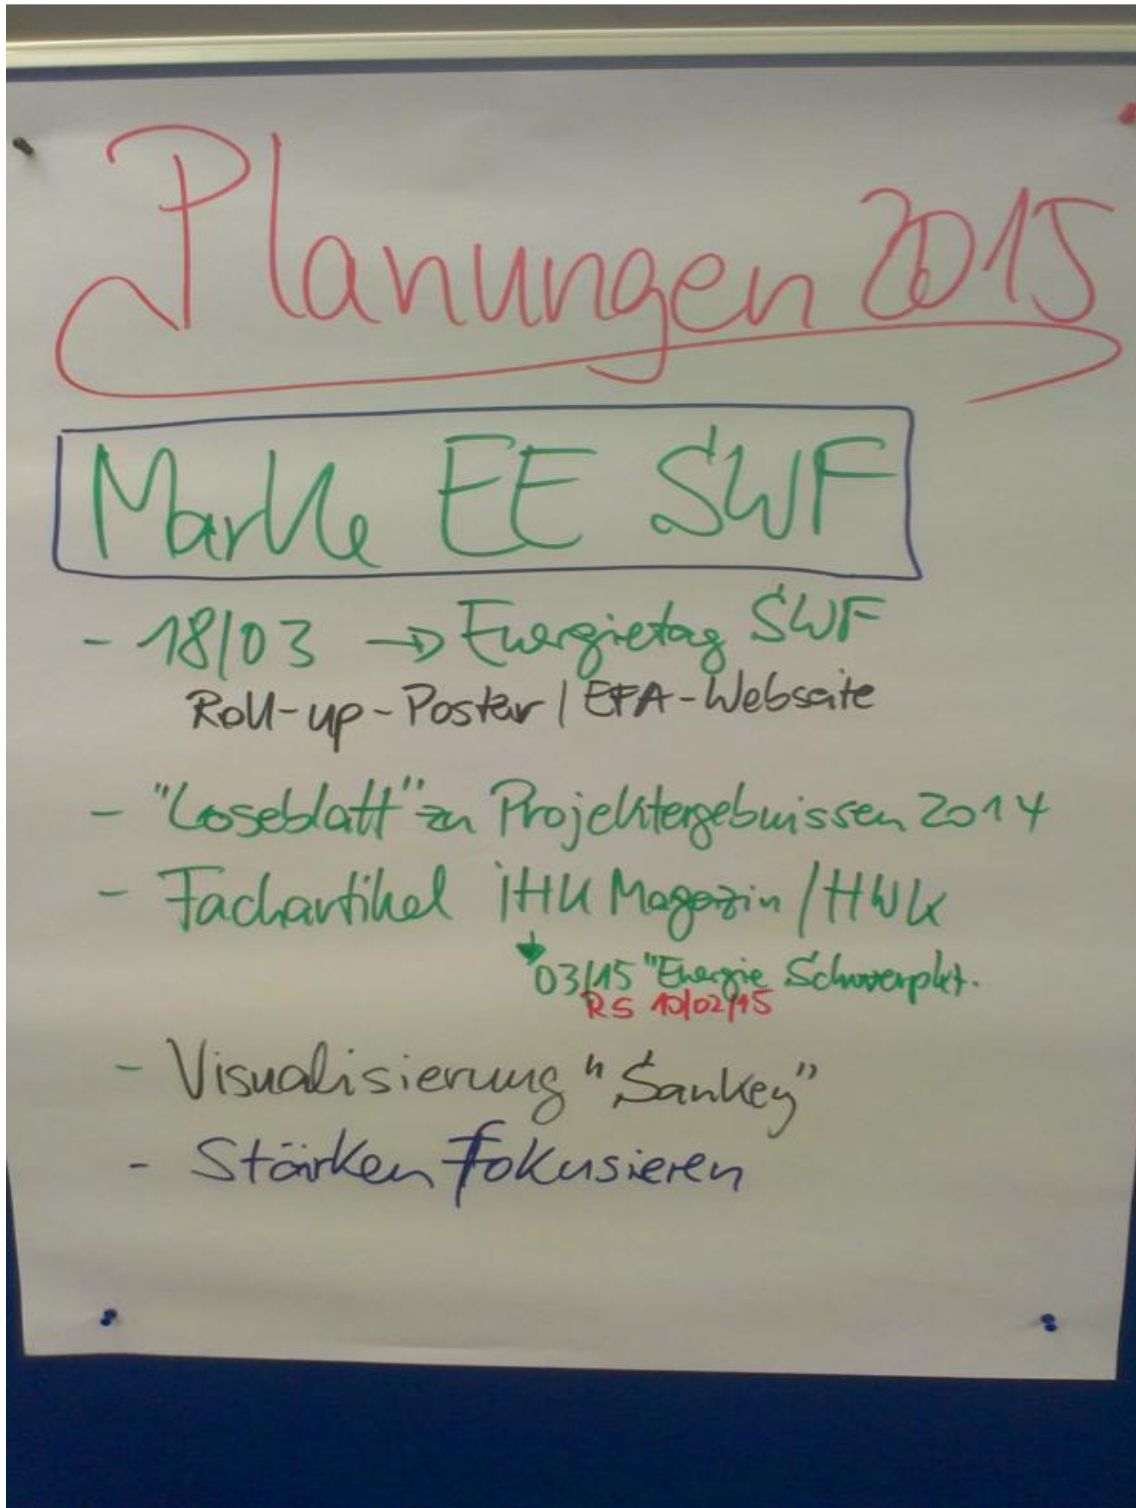 Planungen 2015
Marke EE SWF
- 18/03 → Energietag SWF
Roll-up-Poster / EFA-Webseite
- "Loseblatt" zu Projektergebnissen 2014
- Fachartikel IHK Magazin / HWK
03/15 "Energie Schwerpkt.
RS 10/02/15
- Visualisierung "Sankey"
- Stärken fokusieren